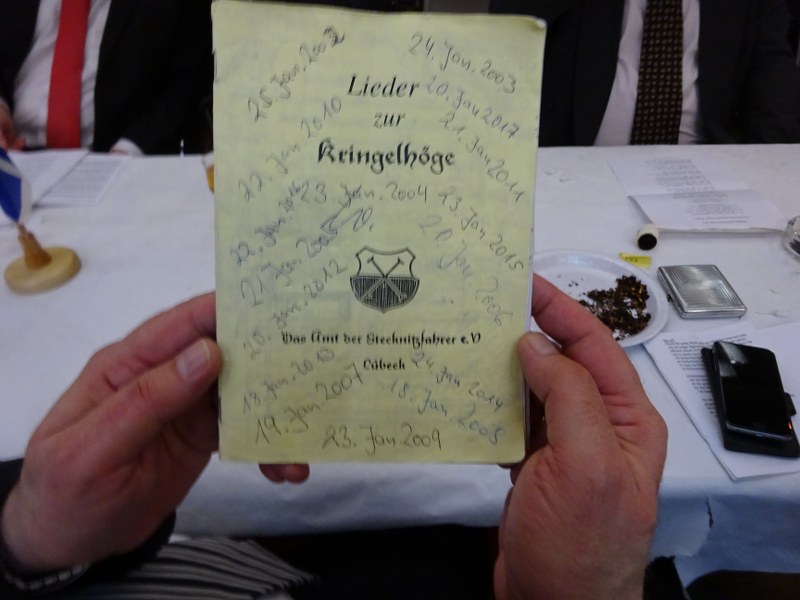 25. Jan. 2002
24. Jan. 2003
Lieder
20. Jan 2017
zur
21. Jan 2011
22. Jan 2010
Kringelhöge
23. Jan. 2004
23. Jan 2015
22. Jan. 2016
21. Jan 2005
20 Jan 2006
20. Jan 2012
Das Amt der Stecknitzfahrer e.V
Lübeck
24 Jan 2014
18. Jan 2013
18. Jan 2008
19. Jan 2007
23. Jan 2009